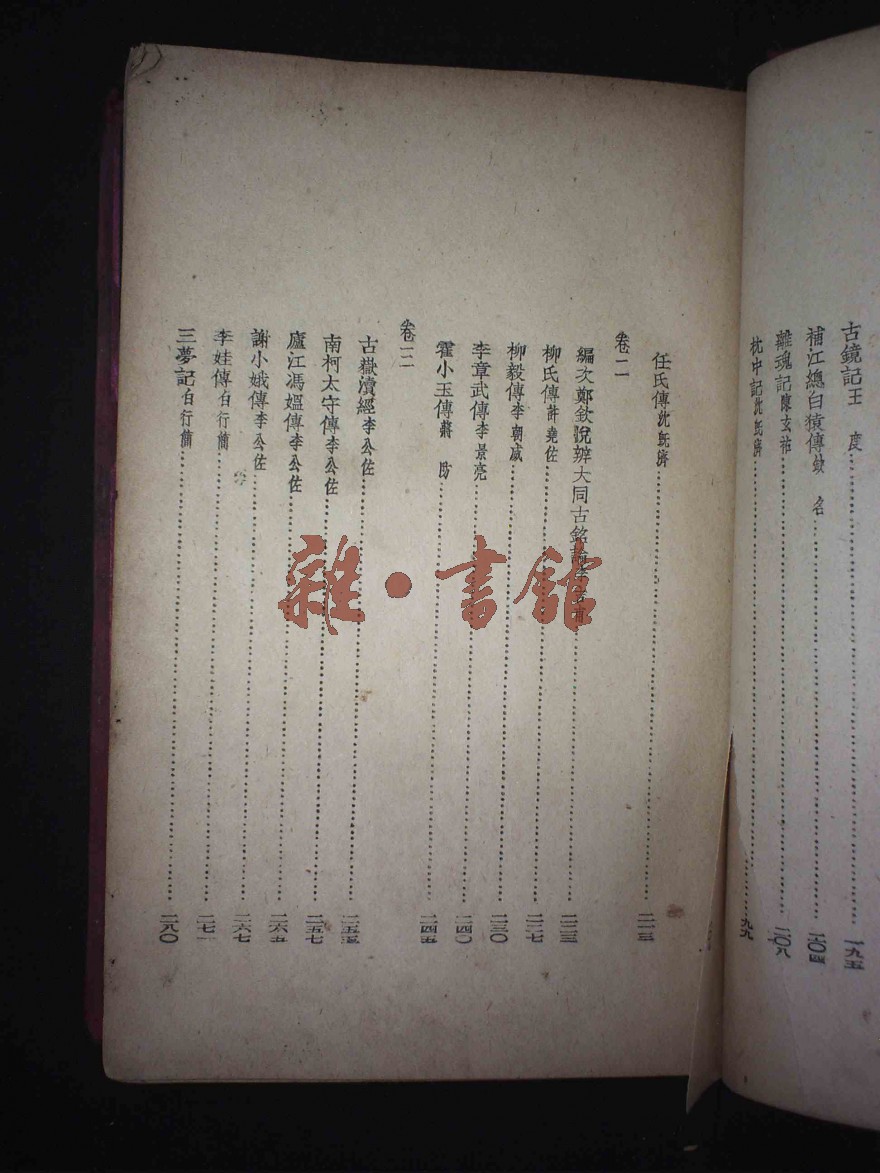 古鏡記王　度……一九五
補江總白猿傳缺　名……二〇四
離魂記陳玄祐……二〇八
枕中記沈既濟……
任氏傳沈既濟……二一三
卷二
編次鄭欽說辨大同古銘論李吉甫……二二三
柳氏傳許堯佐……二二七
柳毅傳李朝威……二三〇
李章武傳李景亮……二四〇
霍小玉傳蔣　防……二四五
卷三
古嶽瀆經李公佐……二五五
南柯太守傳李公佐……二五七
廬江馮媼傳李公佐……二六五
謝小娥傳李公佐……二六七
李娃傳白行簡……二七一
三夢記白行簡……二八〇
雜·書館